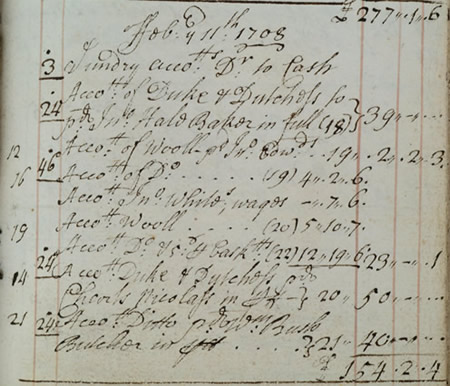 £ 277 „ 1 „ 6
Feb: yͤ 11th: 1708
3 Sundry accotts Dr to Cash
Accott of Duke & Dutchess to
24 pd Jno Hald Baker in full (18) } 39 „ — „ —
12 Accott of Wooll pd Jno 19 „ 2 „ 2 „ 3
16 46 Accott of Do . . . . (19) 4 „ 2 „ 6
Accott Jno White, wages — „ 7 „ 6
19 Accott Wooll . . . . (20) 5 „ 10 „ 7
Accott Do & Cask (22) 12 „ 19 „ 6 23 „ — „ 1
14 24 Accott Duke & Dutchess pd
Nicolass in } 20 „ 50 „ — „ —
21 24 Accott Ditto pd Wm Bush
Butcher in . . . } 21 „ 40 „ — „ —
£ 154 „ 2 „ 4